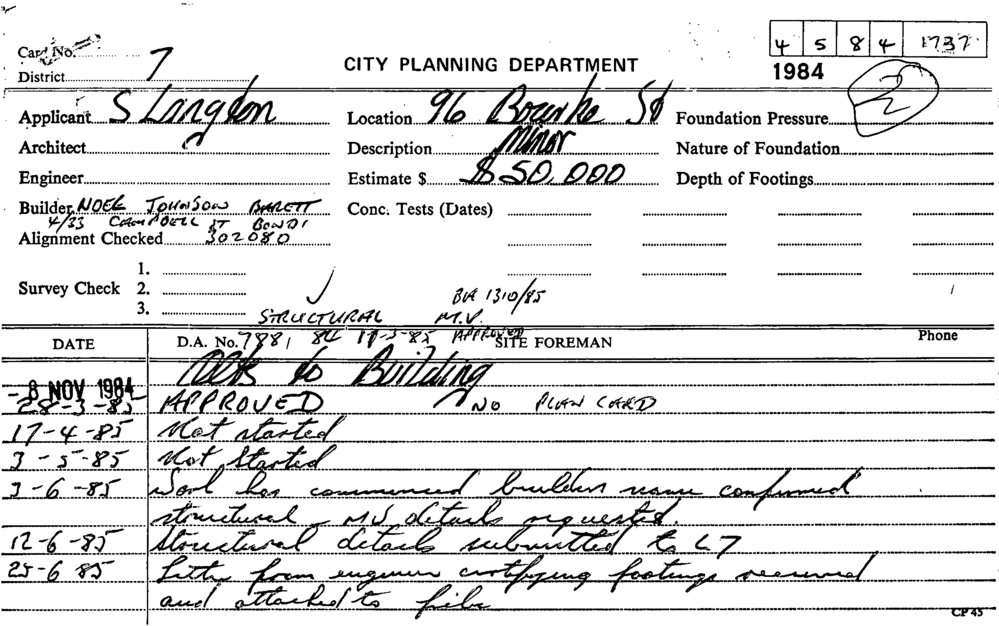 4 5 8 4 1737
Card No.
District 7
CITY PLANNING DEPARTMENT
1984
2
Applicant S Langdon
Location 96 Bourke St
Foundation Pressure
Architect
Description Minor
Nature of Foundation
Engineer
Estimate $ $50,000
Depth of Footings
Builder NOEL JOHNSON BARETT
4/33 CAMPBELL ST BONDI
Conc. Tests (Dates)
Alignment Checked 302080
1.
Survey Check 2.
3.
BA 1310/85
STRUCTURAL M.V.
DATE
D.A. No. 7881 84 17-5-85 APPROVED
SITE FOREMAN
Phone
- 8 NOV 1984 Alts to Building
28-3-85 APPROVED NO PLAN CARD
17-4-85 Not started
3-5-85 Not Started
3-6-85 Work has commenced builders name confirmed
structural - MV details requested.
12-6-85 Structural details submitted to L7
25-6 85 Letter from engineer certifying footings received
and attached to file
CP 45